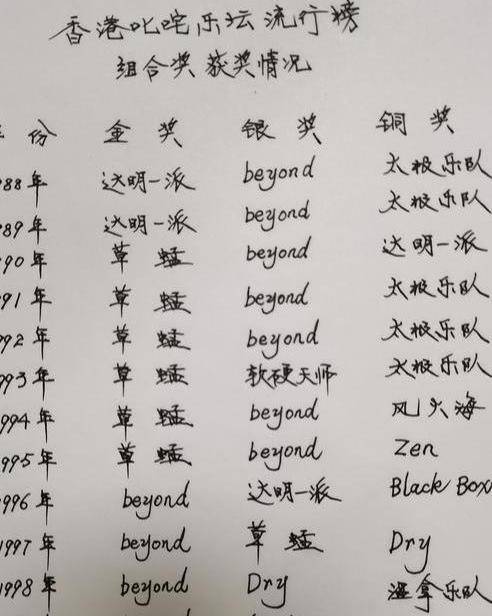 香港叱咤乐坛流行榜
组合奖 获奖情况
份 金奖 银奖 铜奖
988年 达明一派 beyond 太极乐队
989年 达明一派 beyond 太极乐队
990年 草蜢 beyond 达明一派
991年 草蜢 beyond 太极乐队
992年 草蜢 beyond 太极乐队
993年 草蜢 软硬天师 太极乐队
994年 草蜢 beyond 风火海
995年 草蜢 beyond Zen
1996年 beyond 达明一派 Black Box
1997年 beyond 草蜢 Dry
1998年 beyond Dry 温拿乐队